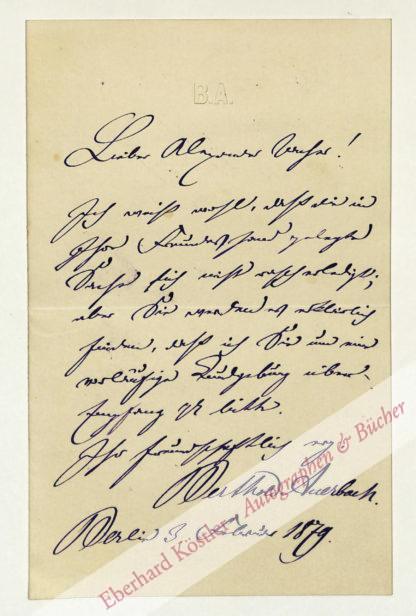 B.A.
Lieber Alexander
Ich weiß wohl, daß die in
Ihre Freundeshand gelegte
Sache sich nicht rasch erledigt;
aber Sie werden es erklärlich
finden, daß ich Sie um eine
vorläufige Kundgebung über
Empfang bitte.
Ihr freundschaftlich erg.
Berthold Auerbach.
Berlin 3 Februar 1879.
Eberhard Köstler Autographen & Bücher